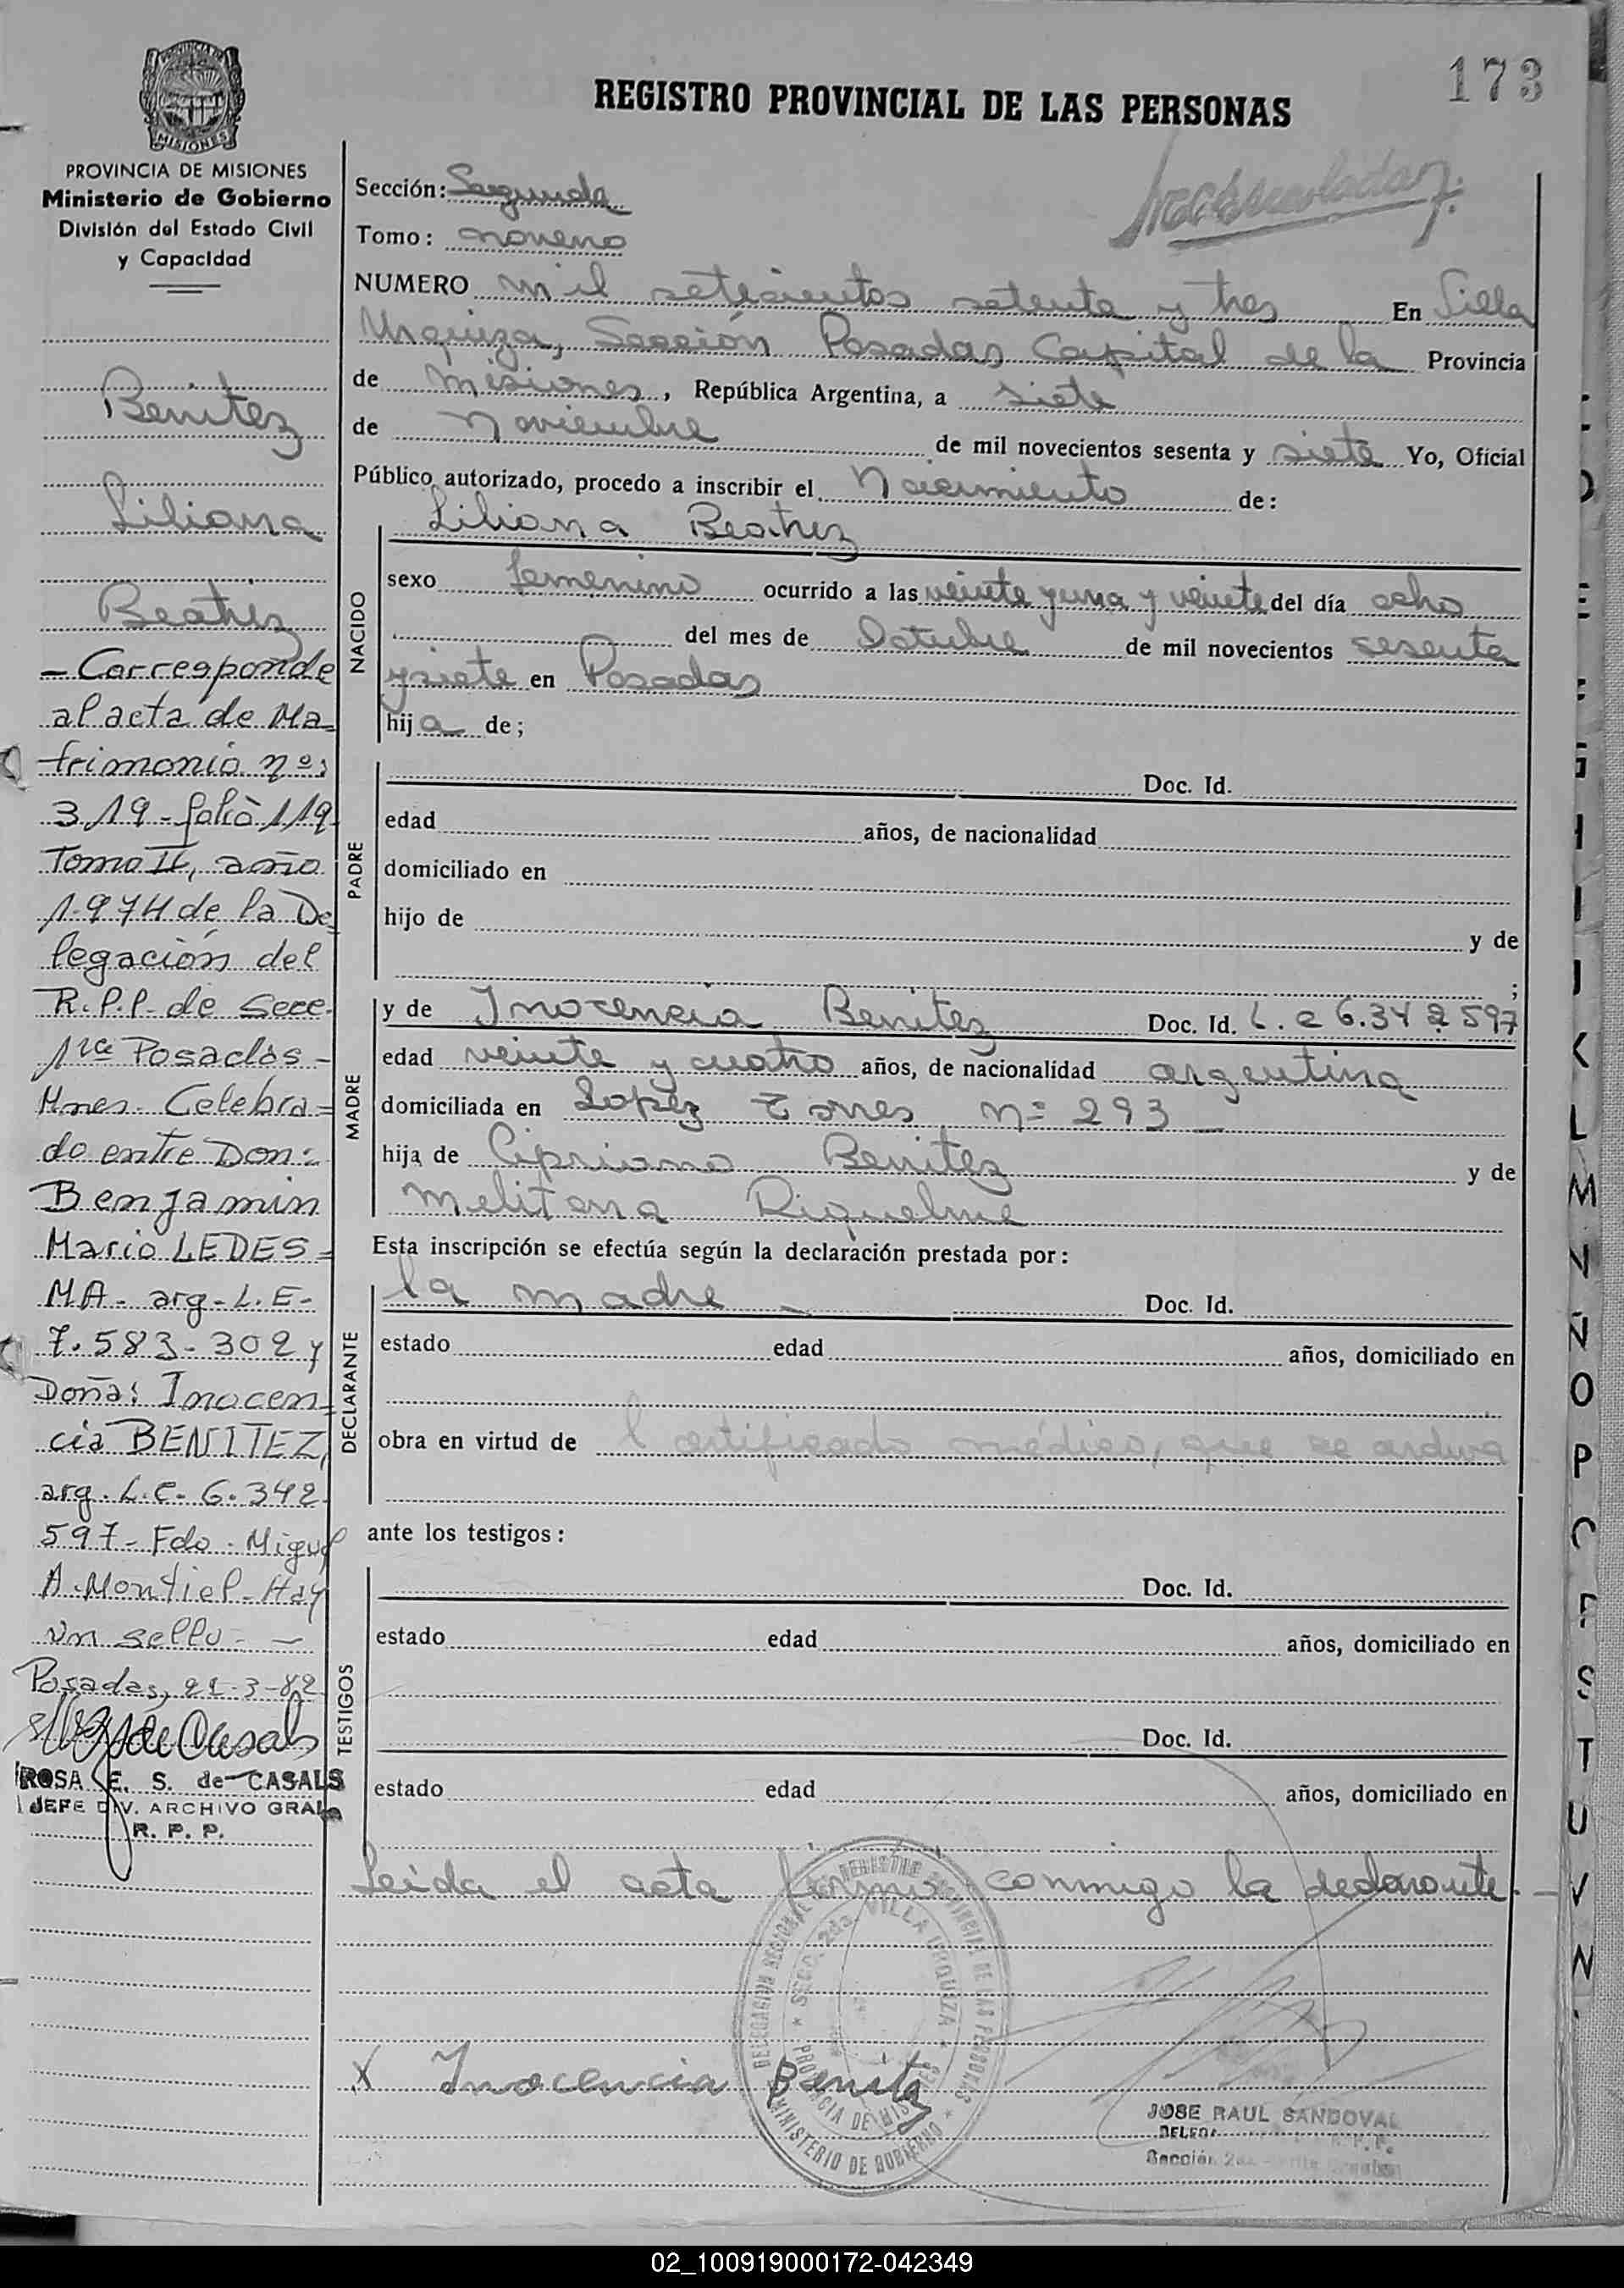 173
REGISTRO PROVINCIAL DE LAS PERSONAS
PROVINCIA DE MISIONES
Ministerio de Gobierno
División del Estado Civil
y Capacidad
Benitez
Liliana
Beatriz
- Corresponde
al acta de Ma-
trimonio nº:
319 - folio 119
Tomo II, año
1.974 de la De-
legación del
R.P.P. de Secc.
1ra Posadas -
Mnes. Celebra-
do entre Don:
Benjamin
Mario LEDES-
MA - arg - L.E-
7.583.302 y
Doña: Inocen-
cia BENITEZ,
arg. L.C. 6.342.
597 - Fdo. Miguel
A. Montiel - Hay
un sello. -
Posadas, 21-3-82
ROSA E. S. de CASALS
JEFE DIV. ARCHIVO GRAL
R. P. P.
Sección: Segunda
Tomo: noveno
NUMERO mil setecientos setenta y tres En Villa
Urquiza, Sección Posadas Capital de la Provincia
de Misiones, República Argentina, a siete
de Noviembre de mil novecientos sesenta y siete Yo, Oficial
Público autorizado, procedo a inscribir el Nacimiento de:
NACIDO
Liliana Beatriz
sexo femenino ocurrido a las veinte y una y veinte del día ocho
del mes de Octubre de mil novecientos sesenta
y siete en Posadas
hija de;
PADRE
Doc. Id.
edad años, de nacionalidad
domiciliado en
hijo de y de
;
MADRE
y de Inocencia Benitez Doc. Id. L.C 6.342597
edad veinte y cuatro años, de nacionalidad argentina
domiciliada en Lopez Torres nº 293 -
hija de Cipriano Benitez y de
Melitona Riquelme
Esta inscripción se efectúa según la declaración prestada por:
DECLARANTE
la madre - Doc. Id.
estado edad años, domiciliado en
obra en virtud de Certificado médico, que se archiva
ante los testigos:
TESTIGOS
Doc. Id.
estado edad años, domiciliado en
Doc. Id.
estado edad años, domiciliado en
Leida el acta firmó conmigo la declarante. -
DELEGACION REGIONAL REGISTRO PROVINCIAL DE LAS PERSONAS
SECC. 2da. VILLA URQUIZA
PROVINCIA DE MISIONES
MINISTERIO DE GOBIERNO
X Inocencia Benitez
JOSE RAUL SANDOVAL
R. P. P.
Sección 2da.
K
L
M
N
Ñ
O
P
S
T
U
V
02_100919000172-042349